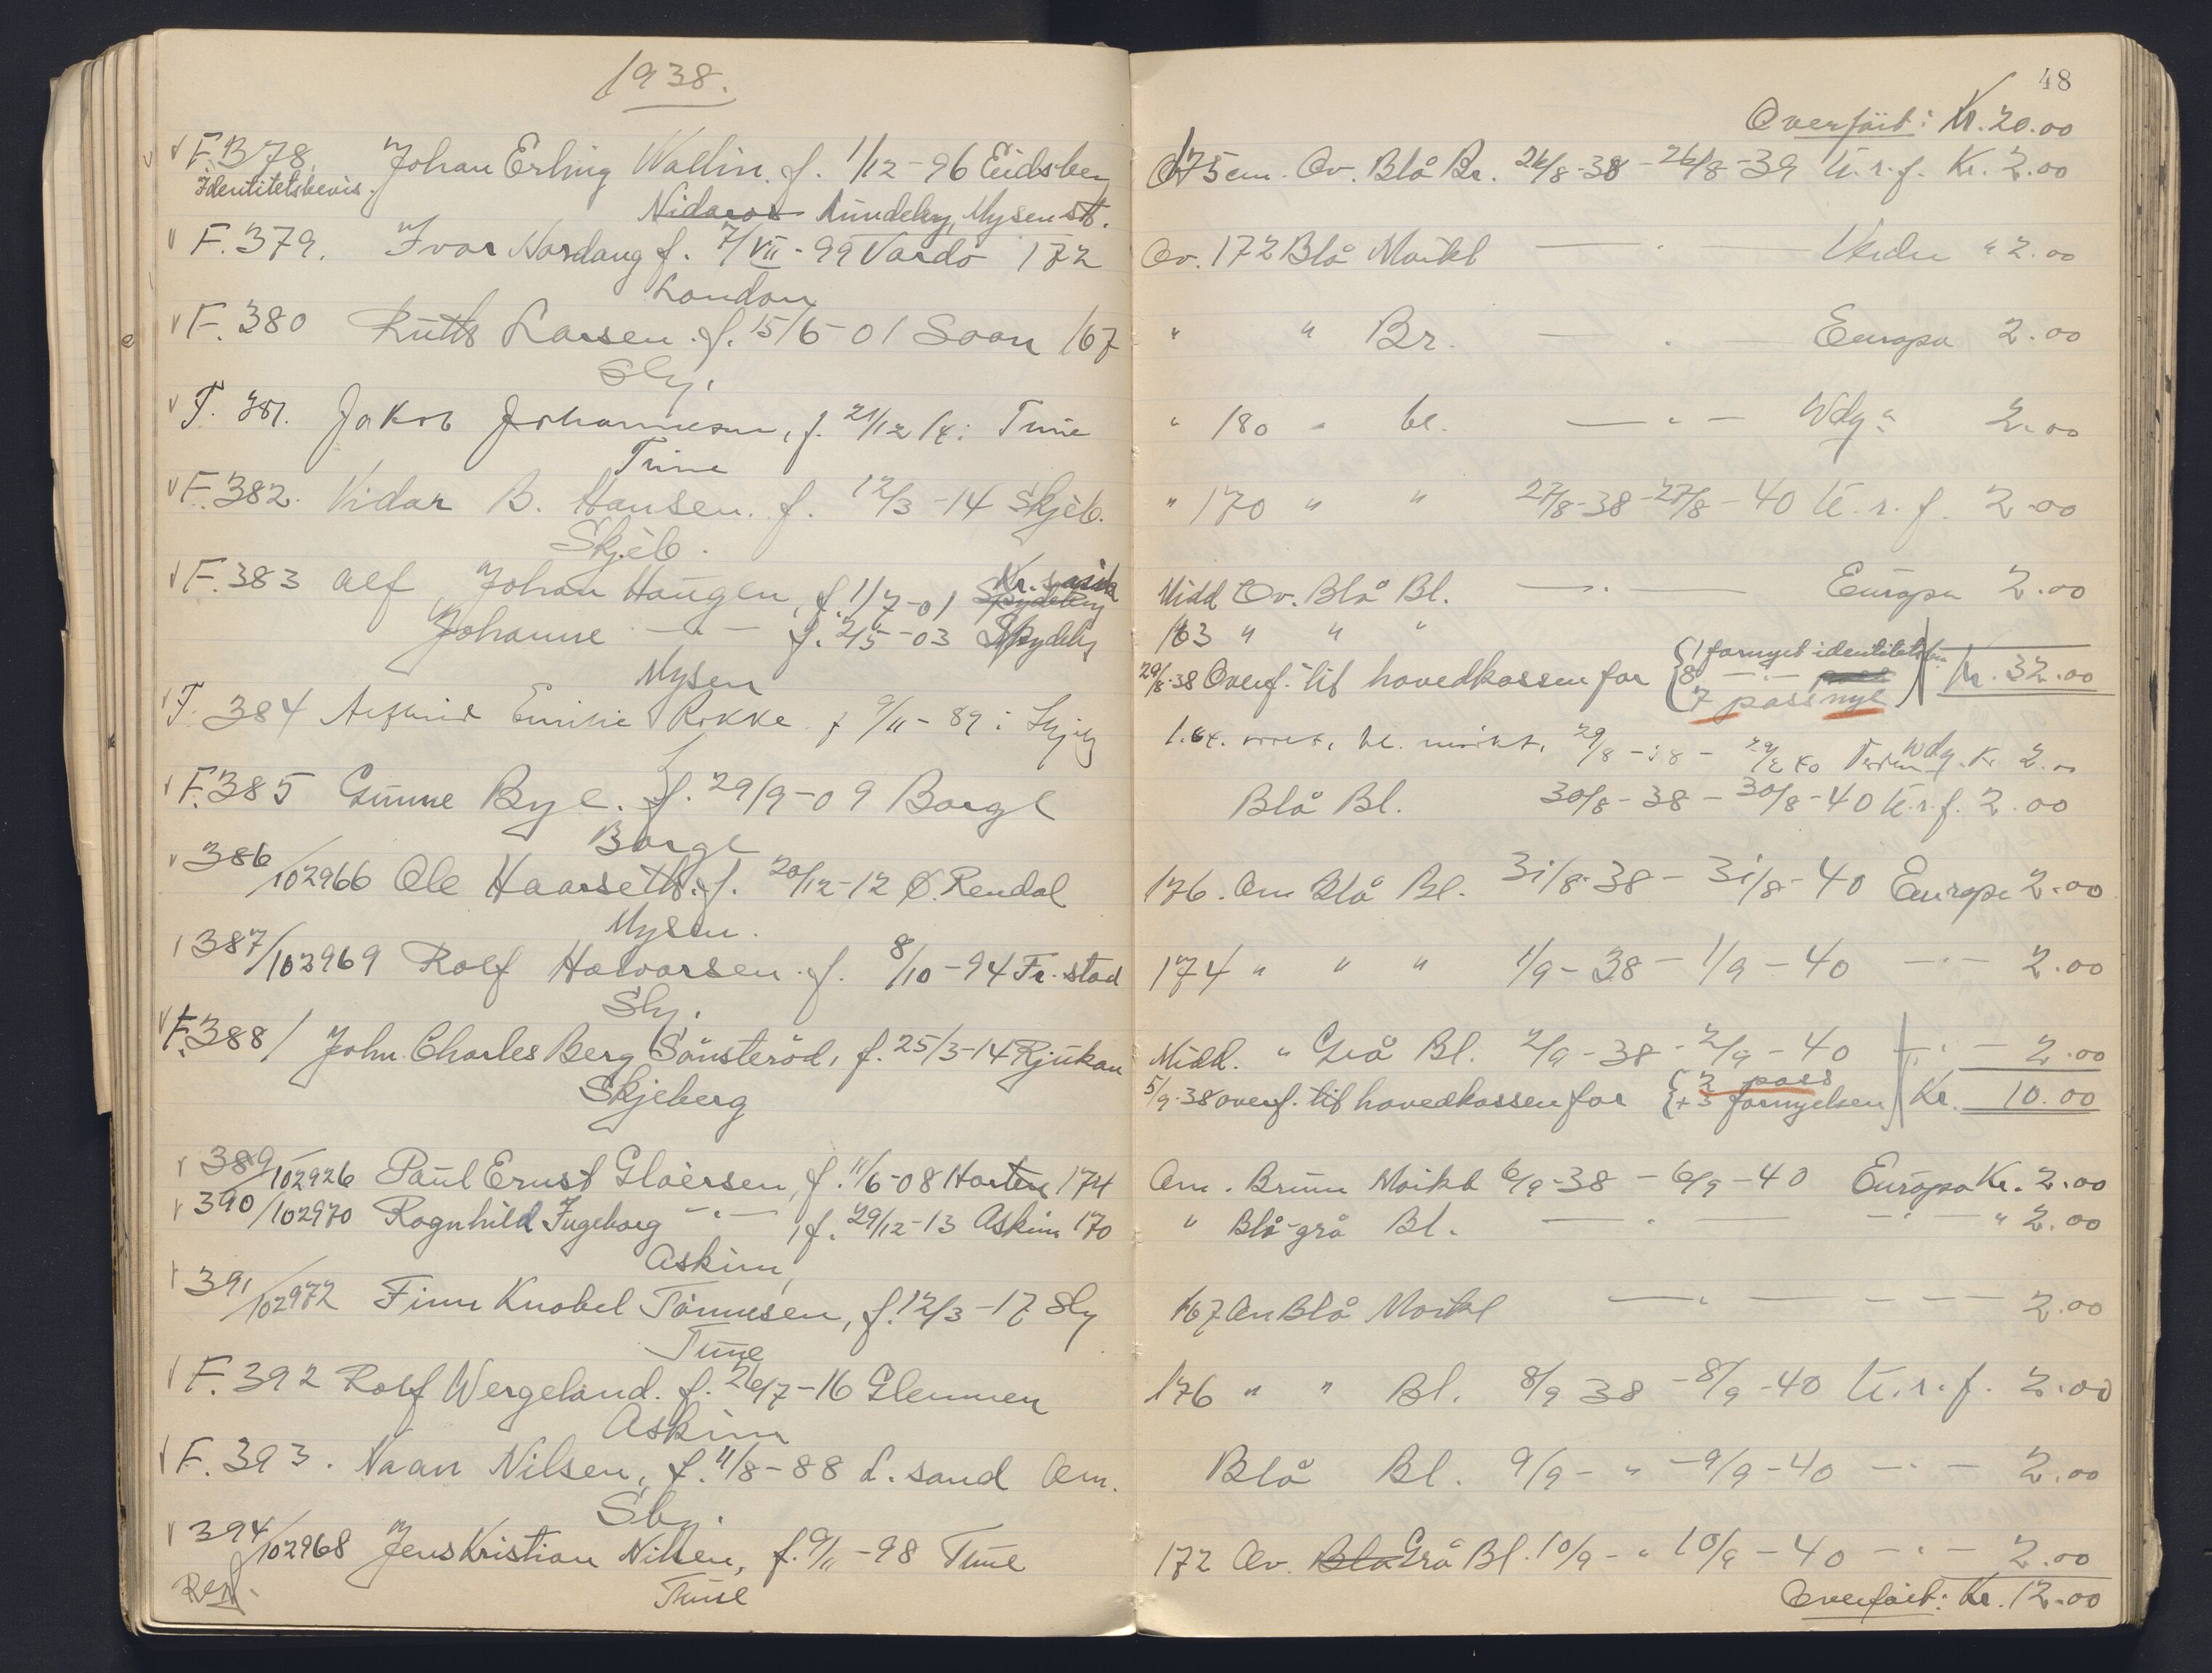 1938.
F. 378. Johan Erling Wallin. f. 1/12-96 Eidsberg
Identitetsbevis. Nidaros Rundeberg, Mysen st.
F. 379. Ivar Nordang f. 7/VII-99 Vardø 172
London
F. 380 Ruth Larsen. f. 15/6-01 Soon 167
Sbg.
F. 381. Jakob Johannesen, f. 21/12 14 i Tune
Tune
F. 382. Vidar B. Hansen. f. 12/3-14 Skjeb.
Skjeb.
F. 383 Alf Johan Haugen, f. 1/7-01 Spydeberg
Johanne —"— f. 2/5-03 Spydebg
Mysen
F. 384 Emilie Rokke f 9/11-89 i
F. 385 Gunne Bye. f. 29/9-09 Borge
Borge
386/102966 Ole Haarseth. f. 20/12-12 Ø. Rendal
Mysen.
387/102969 Rolf Halvorsen. f. 8/10-94 Fr.stad
Sbg.
F. 388/ John Charles Berg Sönsteröd, f. 25/3-14 Rjukan
Skjeberg
389/102926 Paul Ernst Gloersen, f. 11/6-08 Horten 174
390/102970 Ragnhild Ingeborg —"—, f. 29/12-13 Askim 170
Askim,
391/102972 Finn Knobel Tönnesen, f. 12/3-17 Sbg
Tune
F. 392 Rolf Wergeland. f. 26/7-16 Glemmen
Askim
F. 393. Naan Nilsen, f. 11/8-88 L.sand Am.
Sbg.
394/102968 Jens Kristian Nilsen, f. 9/11-98 Tune
Tune
48
Overført: Kr. 20.00
175 cm. Ov. Blå Br. 26/8-38 - 26/8-39 U.r.f. Kr. 2.00
Ov. 172 Blå Mørkbl — " — Verden " 2.00
" " Br. — " — Europa 2.00
" 180 " bl. — " — Wdg. 2.00
" 170 " " 27/8-38 - 27/8-40 U.r.f. 2.00
Midd Ov. Blå Bl. — " — Europa 2.00
163 " " "
29/8-38 Overf. til hovedkassen for { 1 fornyet identitetsbevis
8 —"— pass
7 pass nye } Kr. 32.00
29/8-38 - 29/8 40 Verden Wdg. Kr 2.00
Blå Bl. 30/8-38 - 30/8-40 U.r.f. 2.00
176. Am Blå Bl. 31/8-38 - 31/8-40 Europa 2.00
174 " " " 1/9-38 - 1/9-40 —"— 2.00
Midd. " Grå Bl. 2/9-38 - 2/9-40 —"— 2.00
5/9-38 overf. til hovedkassen for { 2 pass
+ 3 fornyelsen } Kr. 10.00
Am. Brun Mørkbl 6/9-38 - 6/9-40 Europa Kr. 2.00
" Blå-grå Bl. — " — —"— " 2.00
167 Am Blå Mørkbl — " — — — 2.00
176 " " Bl. 8/9 38 - 8/9-40 U.r.f. 2.00
Blå Bl. 9/9- " - 9/9-40 —"— 2.00
172 Ov. Blå Grå Bl. 10/9- " 10/9-40 —"— 2.00
Overført: Kr. 12.00